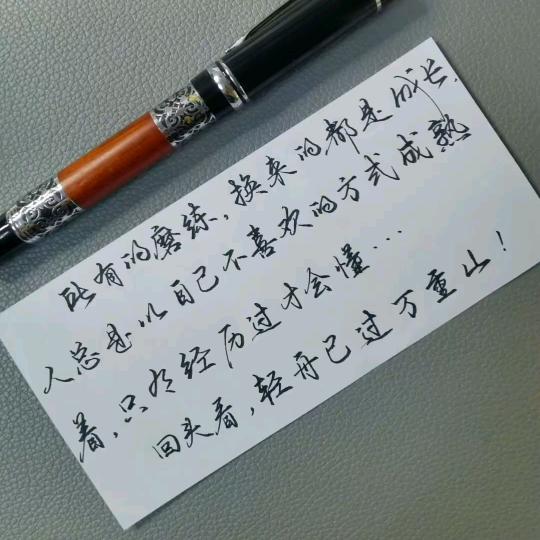 所有的磨练,换来的都是成长.
人总是以自己不喜欢的方式成熟
着,只有经历过才会懂...
回头看,轻舟已过万重山!